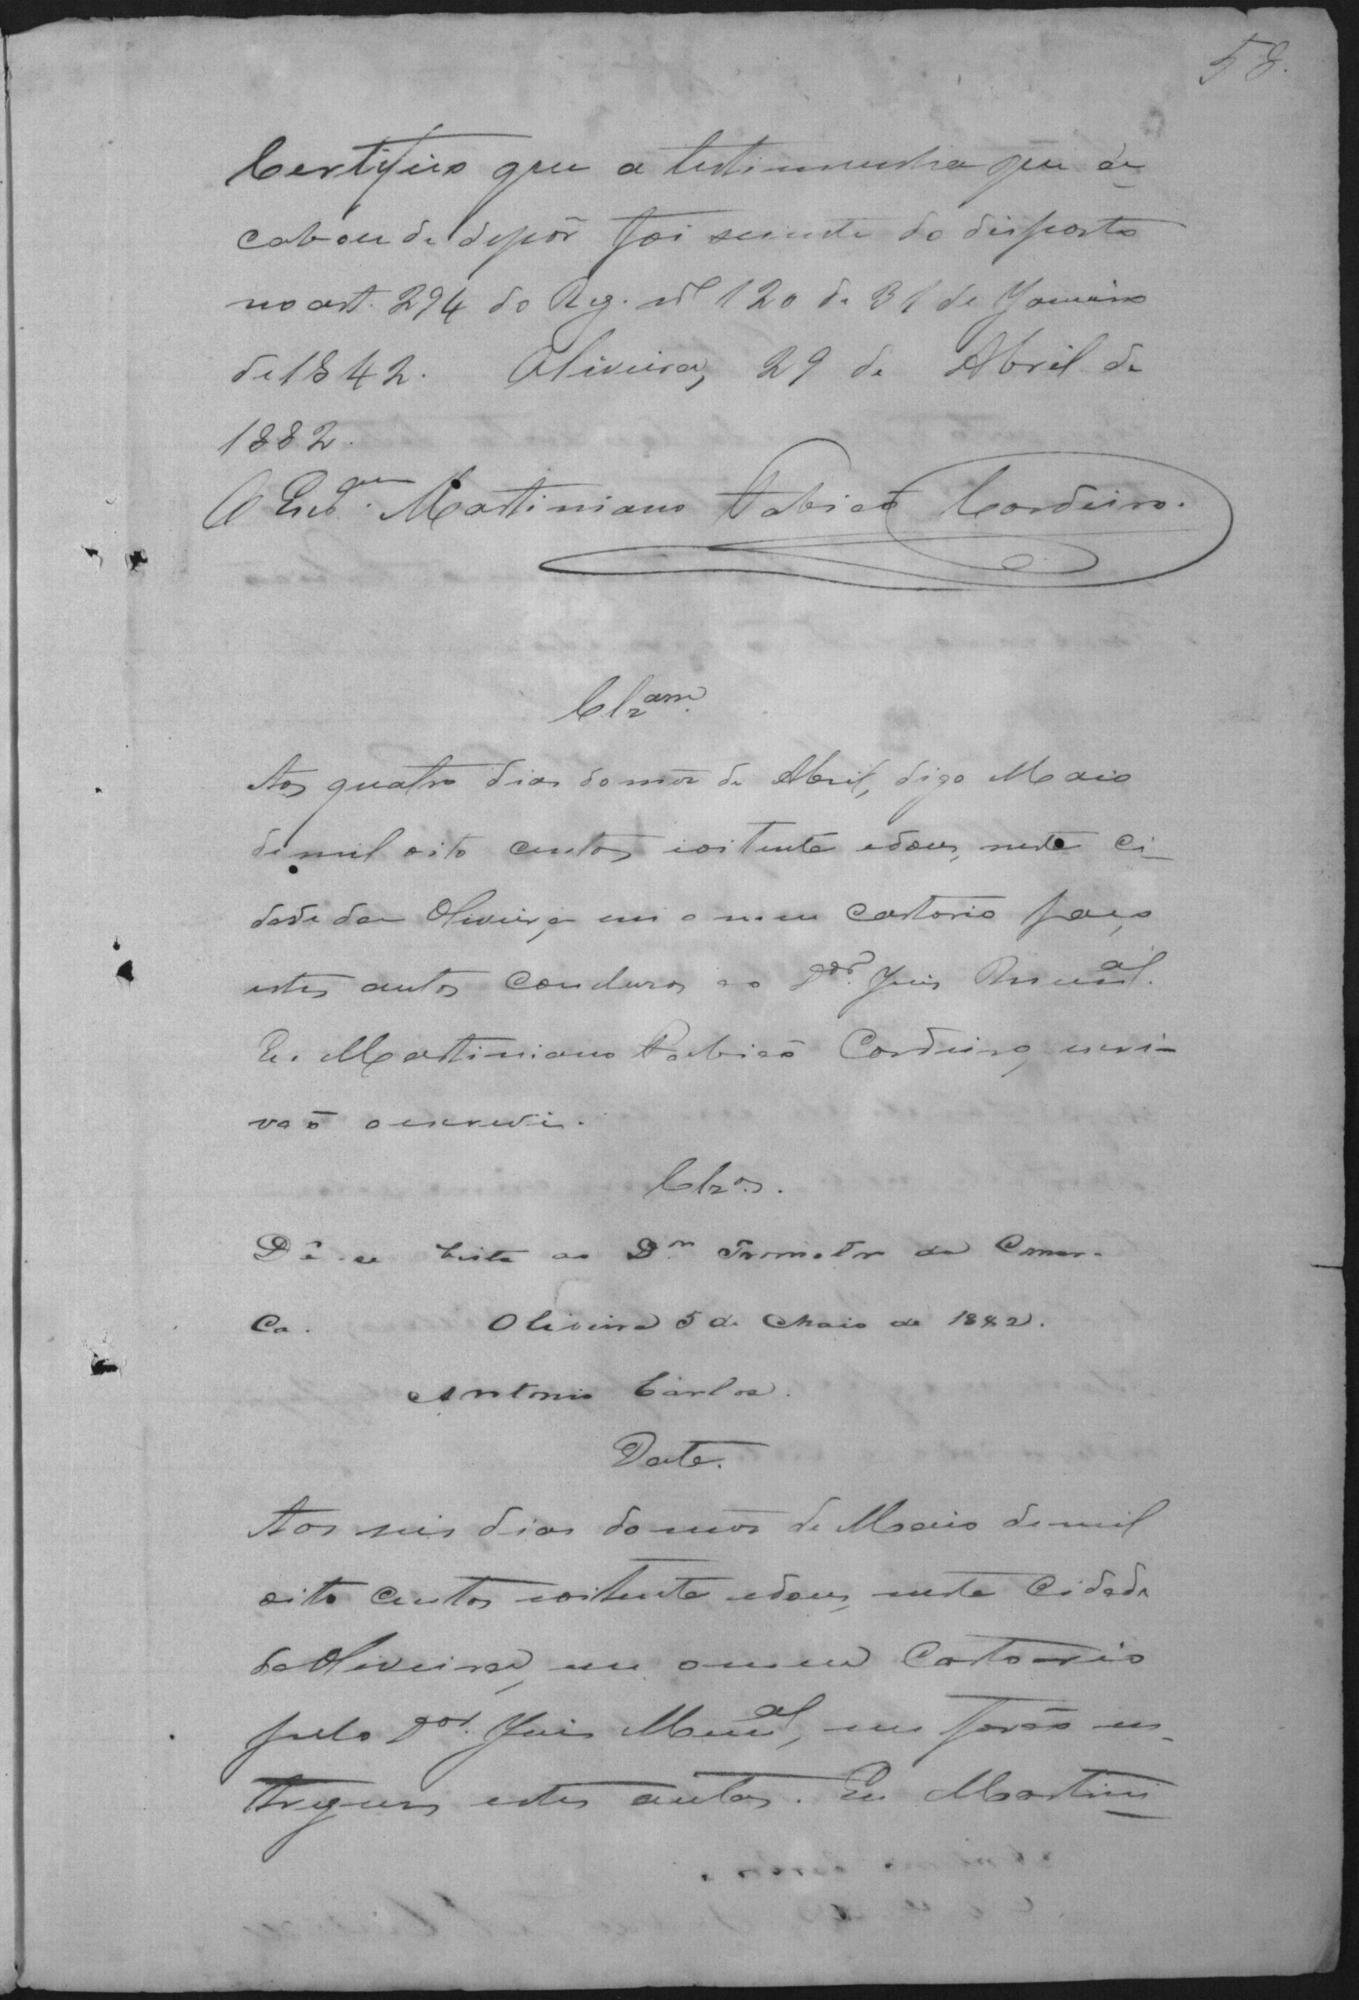 58.
Certifico que a testimunha que a-
cabou de depôr foi sciente do disposto
no art. 294 do Reg. nº 120 de 31 de Janeiro
de 1842. Oliveira, 29 de Abril de
1882.
O Escam. Martiniano Fabião Cordeiro.
Clzam.
Aos quatro dias do mês de Abril, digo Maio
de mil oito centos e oitenta e dous, nesta ci-
dade da Oliveira, em o meu cartorio faço
estes autos concluzos ao Dor. Juis Municipal.
Eu Martiniano Fabião Cordeiro, escri-
vaõ o escrevi.
Clzos.
Dê-se vista ao Dr. Promotor da Comar-
ca. Oliveira 5 de Maio de 1882.
Antonio Carlos.
Data.
Aos seis dias do mês de Maio de mil
oito centos e oitenta e dous, nesta cidade
da Oliveira, em o meu Cartorio
pelo Dor. Juis Munal, me forão en-
tregues estes autos. Eu Martini